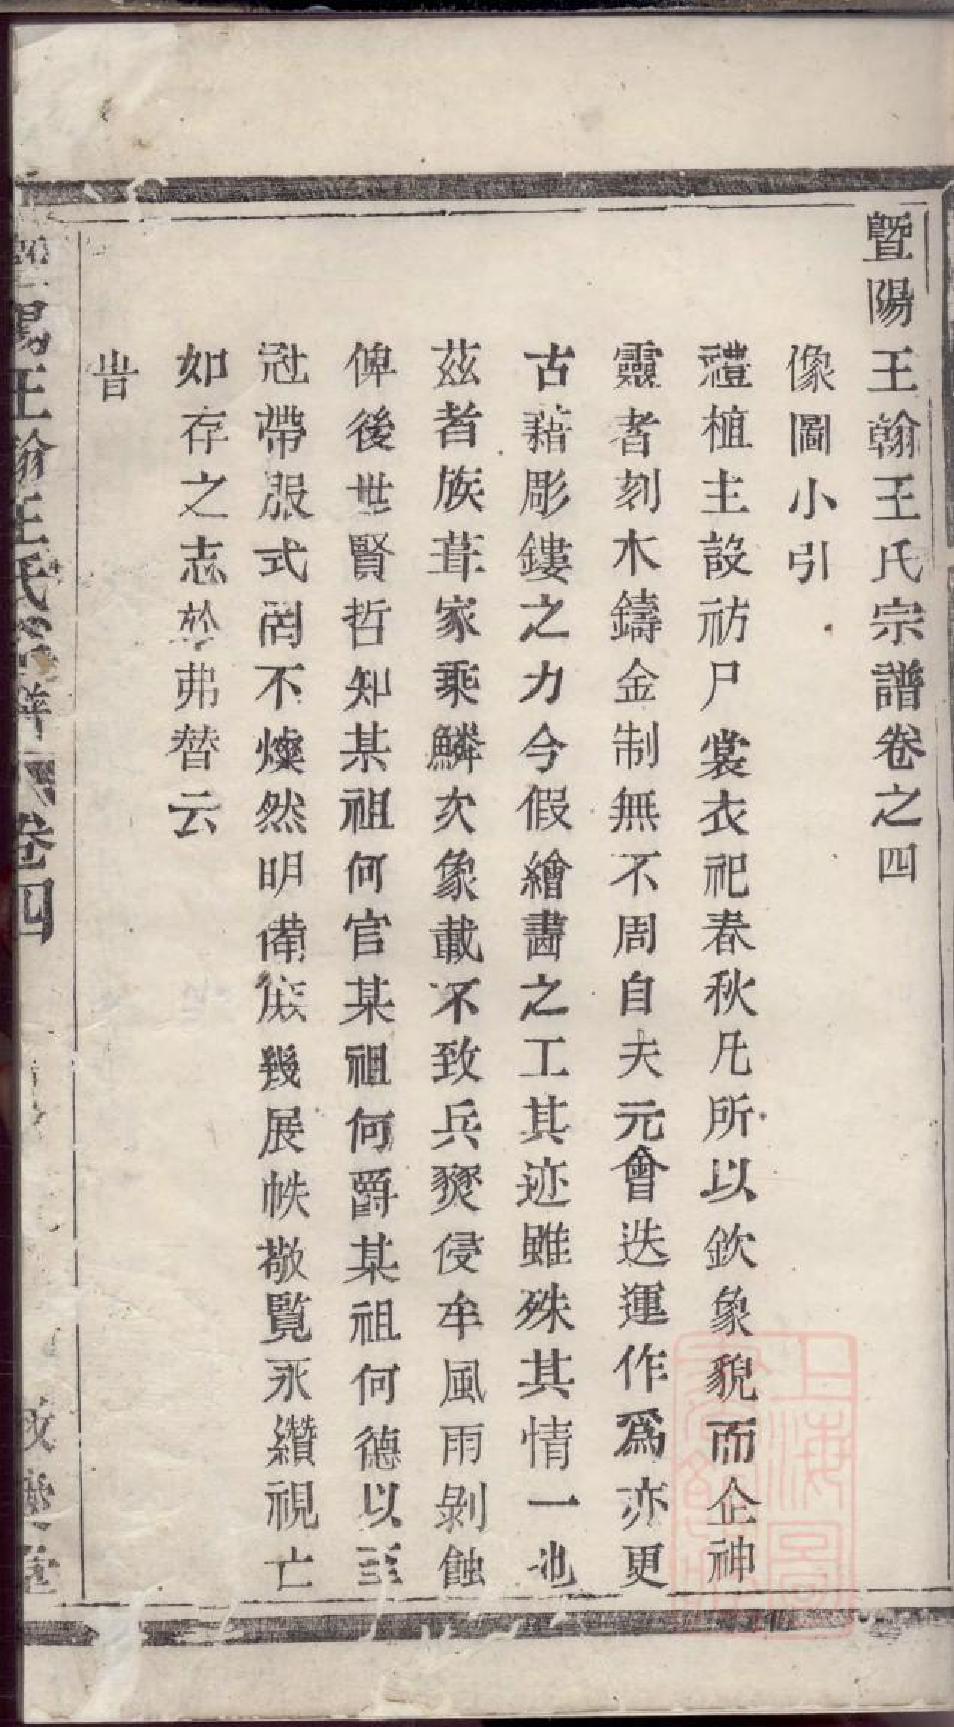 暨陽王翰王氏宗譜卷之四
像圖小引
禮植主設祊尸裳衣祀春秋凡所以欽象貌而企神
靈者刻木鑄金制無不周自夫元會迭運作爲亦更
古藉彫鏤之力今假繪畵之工其迹雖殊其情一也
茲者族葺家乘鱗次象載不致兵燹侵牟風雨剝蝕
俾後世賢哲知某祖何官某祖何爵某祖何德以至
冠帶服式罔不燦然明備庶幾展帙敬覧永纘視亡
如存之志於弗替云
旹
暨陽王翰王氏宗譜 卷四